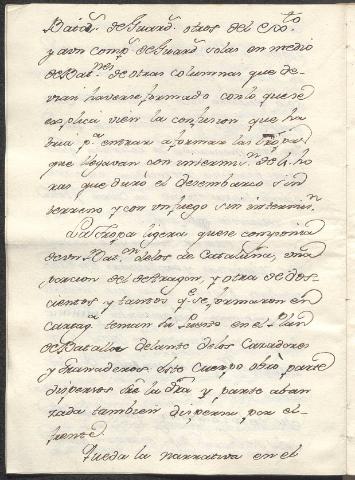 Batn. de Guards. otros del Exto.
y aun comps. de Guards. solas en medio
de Batnes. de otras columnas que de-
vian haverse formado con lo que se
explica vien la confusion que ha
bria pa. entrar a formar las tropas
que llegavan con intermisn. de 4 ho
ras que duró el desembarco sin
terreno y con un fuego sin intermisn.
La tropa ligera que se componia
de un Batn. de los de Cataluña, una
porcion del de Aragon, y otra de dos-
cientos y tantos qe. se formaron en
Cartaga. tenian su Puesto en el Plan
de Batalla delante de los Cazadores
y Granaderos. Este Cuerpo obró parte
dispersos sre. la Dra. y parte aban
zada tambien dispersa por el
frente.
Queda la narrativa en el